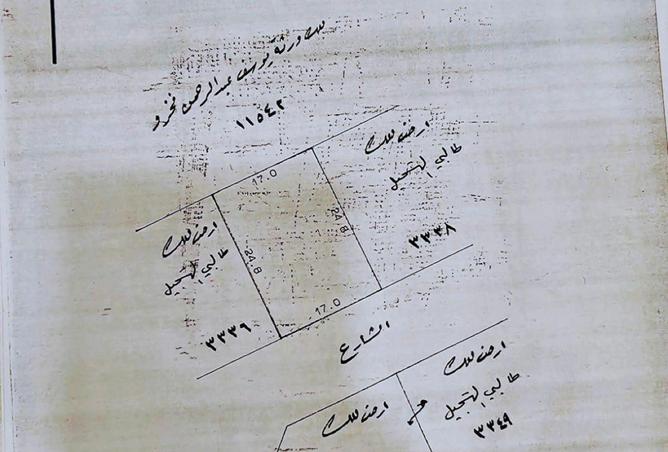 ملك ورثة يوسف عبد الرحمن فخرو
١١٥٤٢
ارض ملك
طالبي التسجيل
٣٣٣٨
17.0
24.8
24.8
17.0
ارض ملك
طالبي التسجيل
٣٣٣٦
الشارع
ارض ملك
طالبي التسجيل
٣٣٤٩
ارض ملك